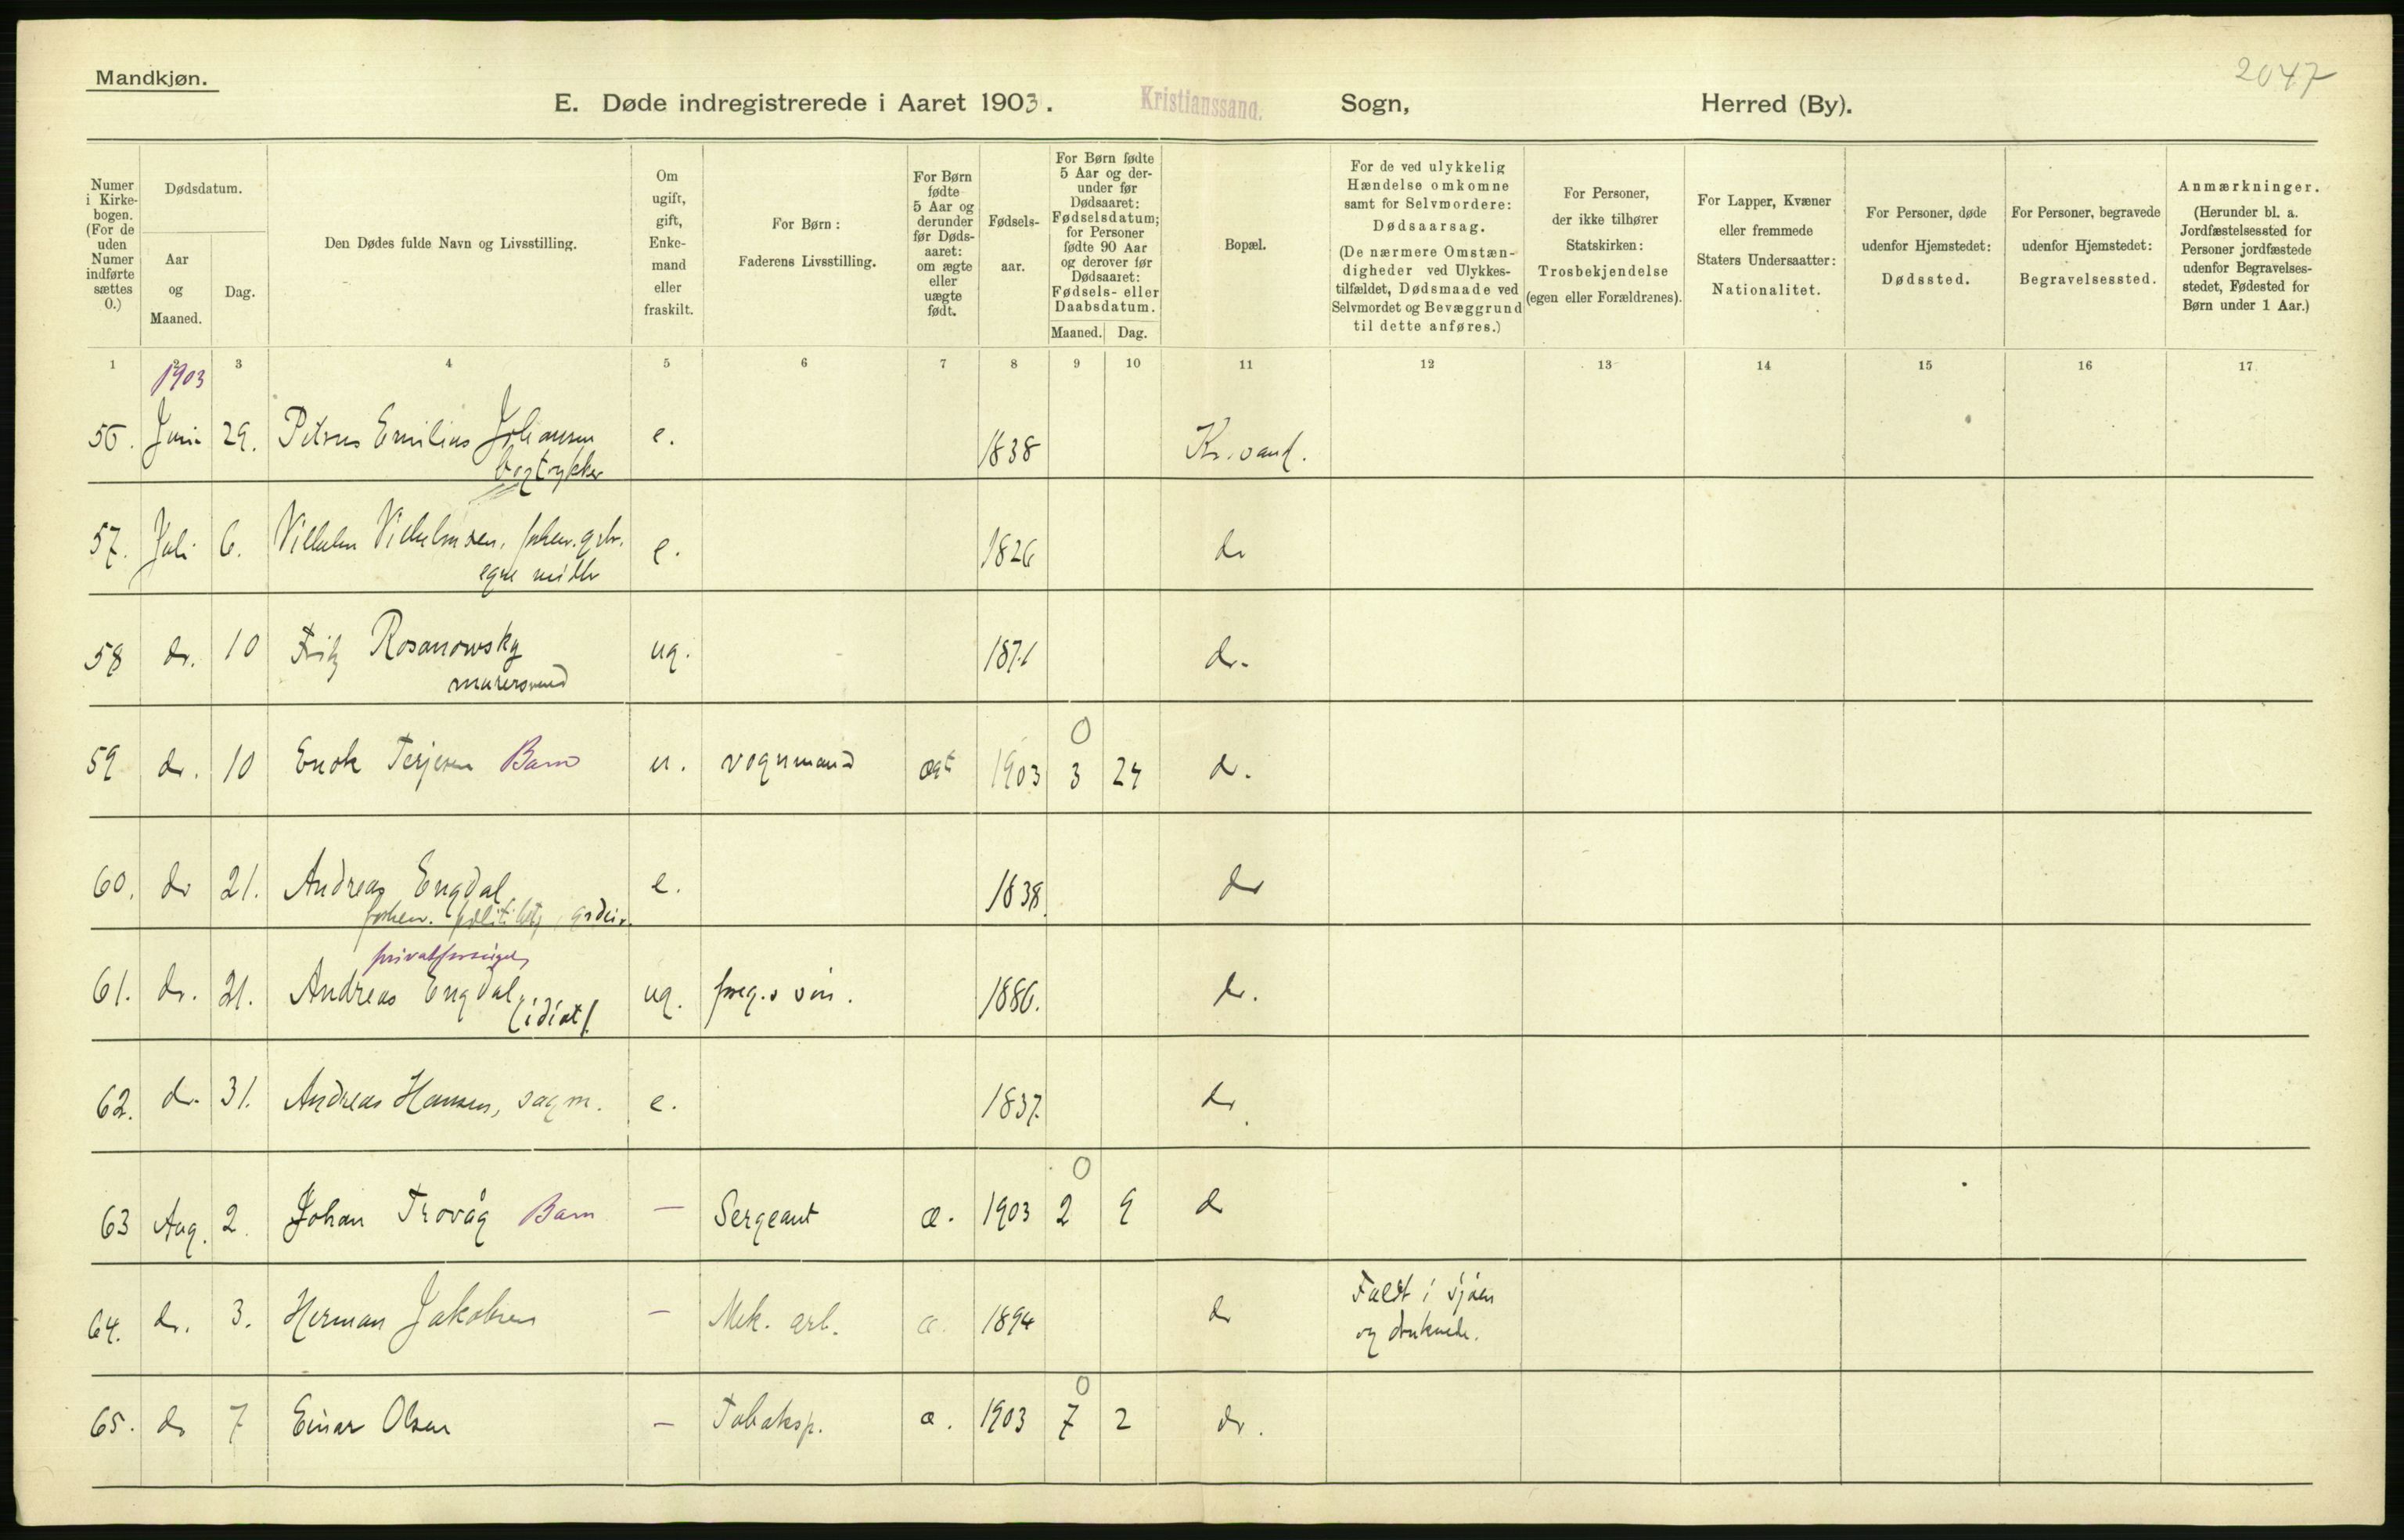 Mandkjøn.
2047
E. Døde indregistrerede i Aaret 1903. Kristianssand. Sogn, Herred (By).
Numer i Kirkebogen. (For de uden Numer indførte sættes 0.)
Dødsdatum.
Aar og Maaned.
Dag.
Den Dødes fulde Navn og Livsstilling.
Om ugift, gift, Enkemand eller fraskilt.
For Børn: Faderens Livsstilling.
For Børn fødte 5 Aar og derunder før Dødsaaret: om ægte eller uægte født.
Fødselsaar.
For Børn fødte 5 Aar og derunder før Dødsaaret: Fødselsdatum; for Personer fødte 90 Aar og derover før Dødsaaret: Fødsels- eller Daabsdatum.
Maaned. Dag.
Bopæl.
For de ved ulykkelig Hændelse omkomne samt for Selvmordere: Dødsaarsag. (De nærmere Omstændigheder ved Ulykkestilfældet, Dødsmaade ved Selvmordet og Bevæggrund til dette anføres.)
For Personer, der ikke tilhører Statskirken: Trosbekjendelse (egen eller Forældrenes).
For Lapper, Kvæner eller fremmede Staters Undersaatter: Nationalitet.
For Personer, døde udenfor Hjemstedet: Dødssted.
For Personer, begravede udenfor Hjemstedet: Begravelsessted.
Anmærkninger. (Herunder bl. a. Jordfæstelsessted for Personer jordfæstede udenfor Begravelsesstedet, Fødested for Børn under 1 Aar.)
1 2 3 4 5 6 7 8 9 10 11 12 13 14 15 16 17
1903
56. Juni 29. Petrus Emilius Johansen e. 1838 Kr.sand.
bogtrykker
57. Juli 6. Vilhelm Vilhelmsen, forhen. e. 1826 do
egne midler
58 do. 10 Fritz Rosanowsky ug. 1871 do.
murersvend
59 do. 10 Enok Terjesen Barn u. vognmand ægt 1903 0 3 24 do.
60. do 21. Andreas Engdal e. 1838. do
forhen. politibetj.
61. do. 21. Andreas Engdal, ug. foreg.s søn. 1886. do.
privatforsørget
(idiot).
62. do. 31. Andreas Hansen, sagm. e. 1837. do
63 Aug. 2. Johan Trovåg Barn — Sergeant æ. 1903 0 2 9 do
64. do. 3. Herman Jakobsen — Mek. arb. æ. 1894 do Faldt i sjøen
og druknede.
65. do 7 Einar Olsen — Tobaksp. æ. 1903 0 7 2 do.